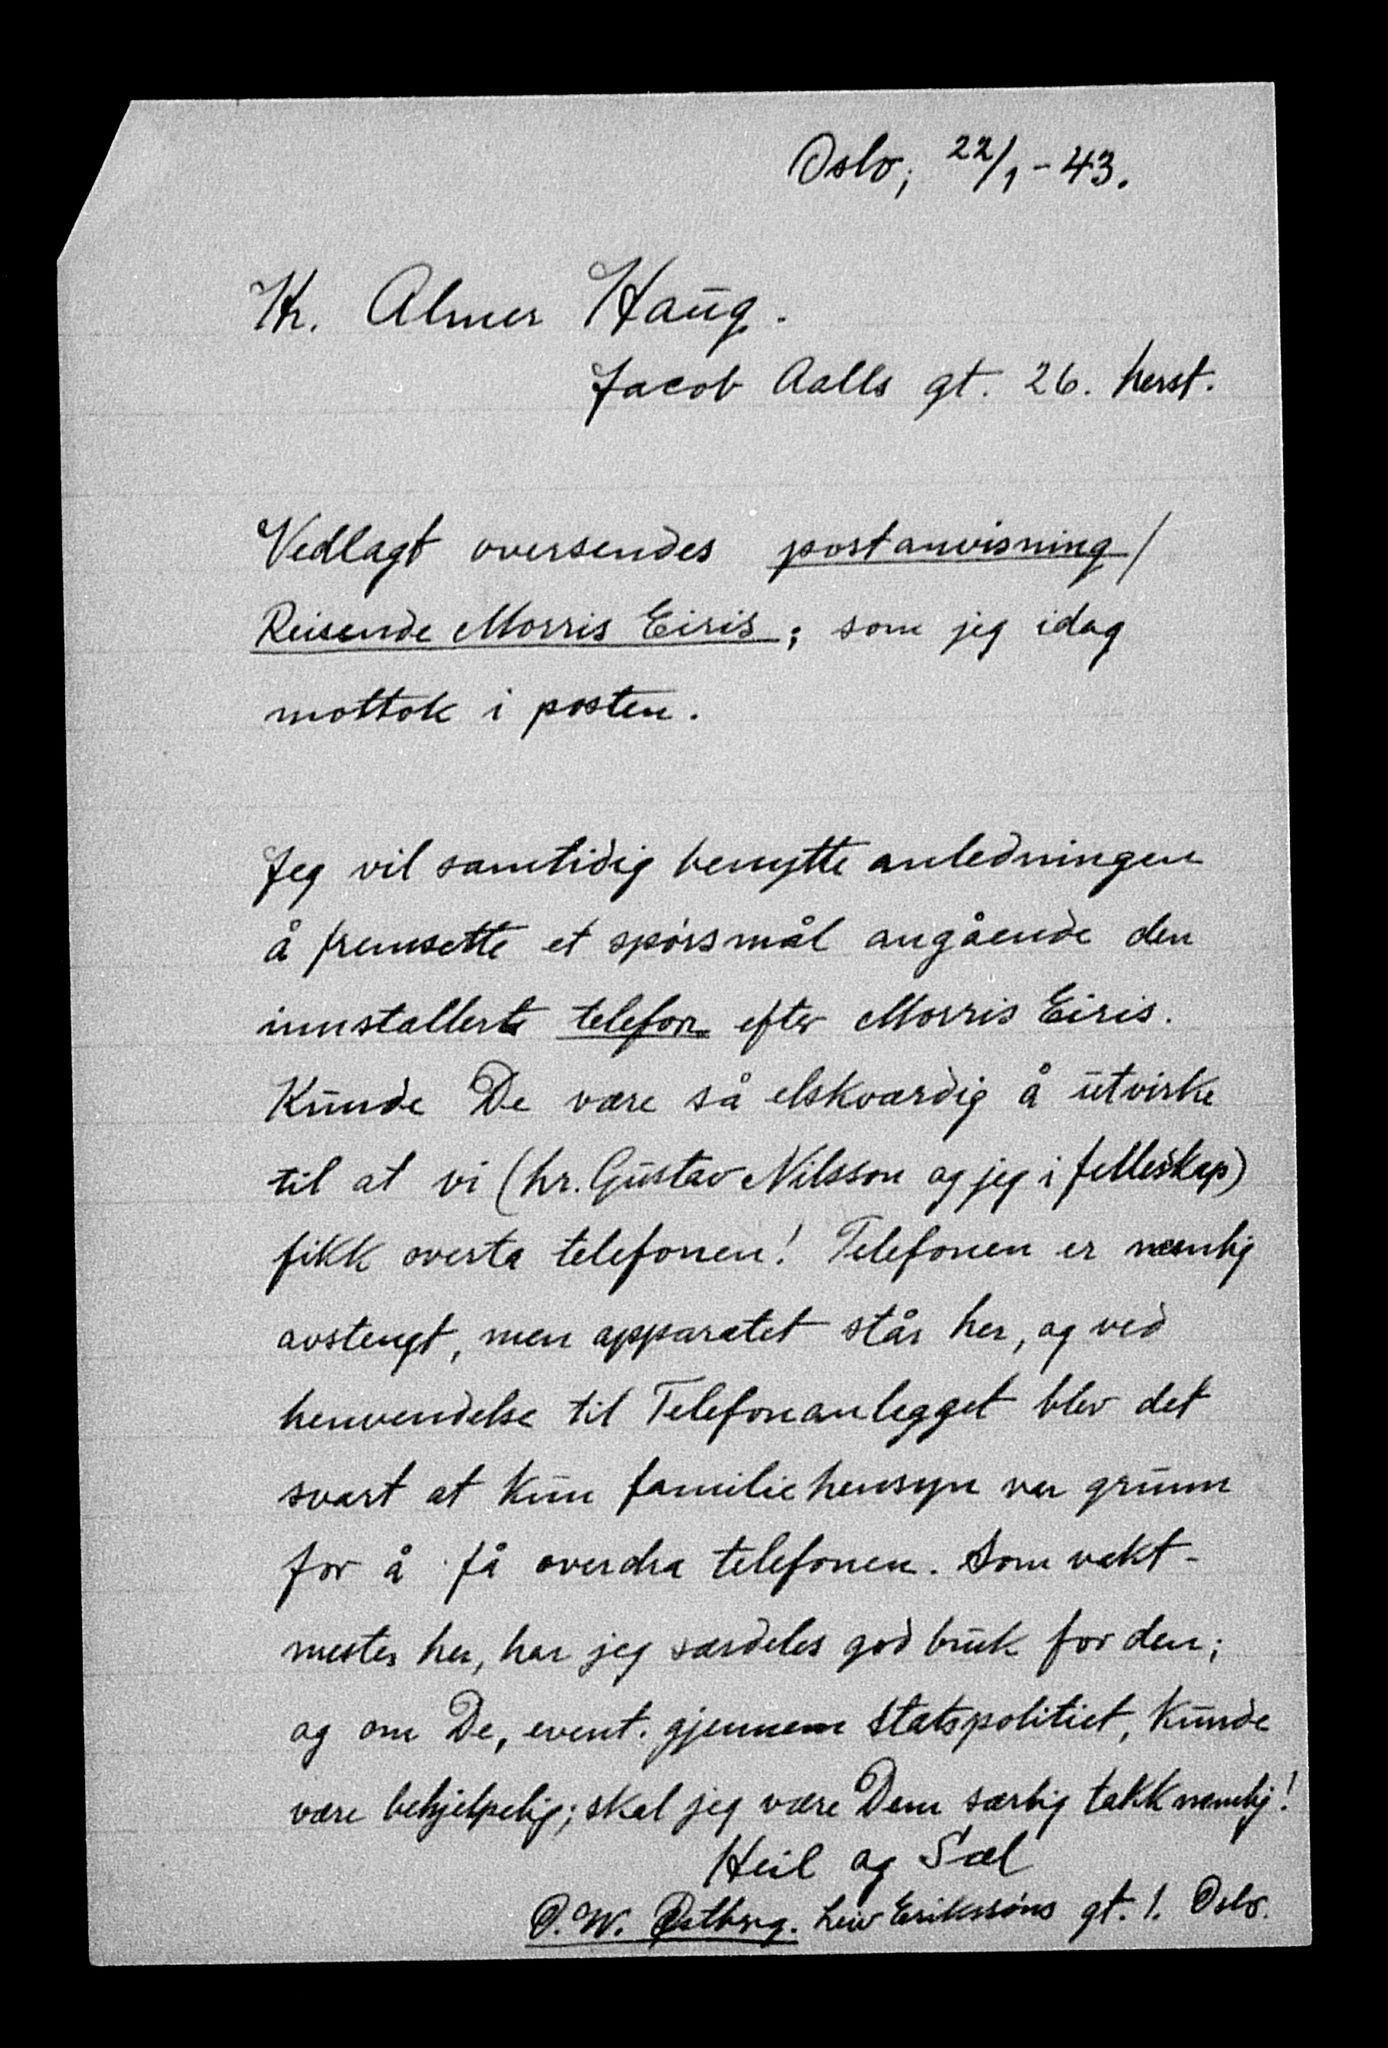 Oslo, 22/1 - 43.
Hr. Almer Haug.
Jacob Aalls gt. 26. herst.
Vedlagt oversendes postanvisning/
Reisende Morris Eiris; som jeg idag
mottok i posten.
Jeg vil samtidig benytte anledningen
å fremsette et spørsmål angående den
innstallerte telefon efter Morris Eiris.
Kunde De være så elskværdig å utvirke
til at vi (hr. Gustav Nilsson og jeg i felleskap)
fikk overta telefonen! Telefonen er nemlig
avstengt, men apparatet står her, og ved
henvendelse til Telefonanlegget blev det
svart at kun familiehensyn var grunn
for å få overdra telefonen. Som vakt-
mester her, har jeg særdeles god bruk for den;
og om De, event. gjennem Statspolitiet, kunde
være behjelpelig; skal jeg være Dem særlig takknemlig!
Heil og Sæl
O. W. Østberg. Leiv Erikssøns gt. 1. Oslo.